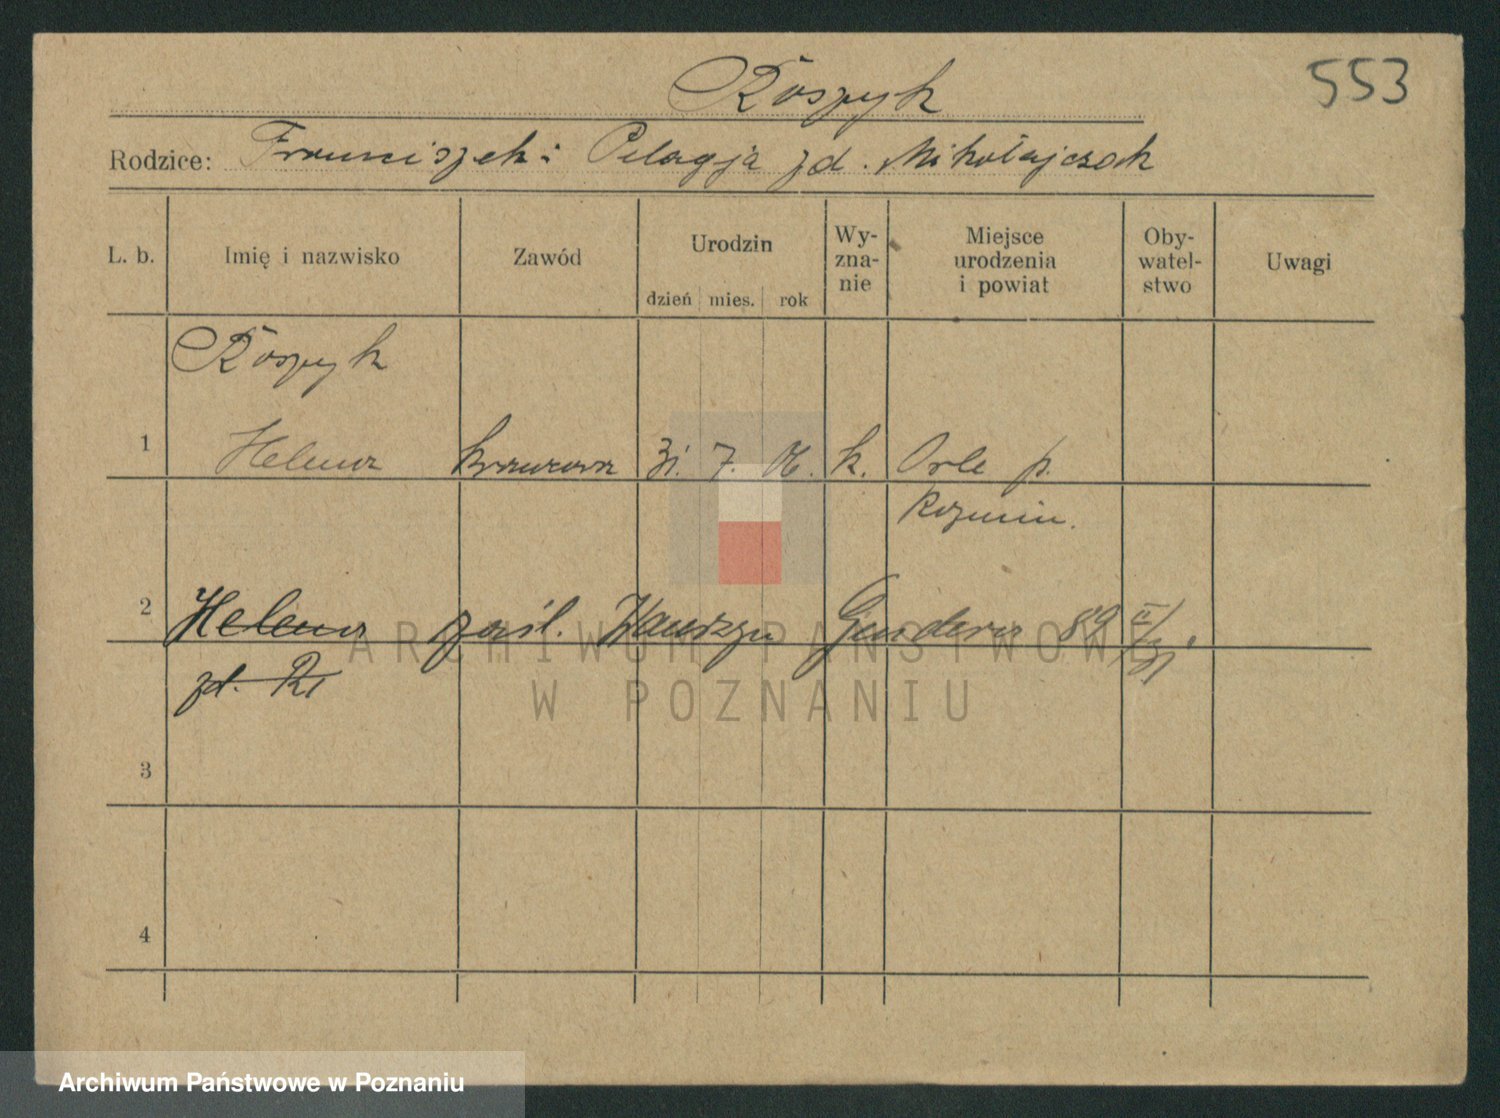 553
Rószyk
Rodzice: Franciszek i Pelagja zd. Mikołajczak
L. b. Imię i nazwisko Zawód Urodzin dzień mies. rok Wy-zna-nie Miejsce urodzenia i powiat Oby-watel-stwo Uwagi
Rószyk
1 Helena krawcowa 31. 7. 06. k. Orle p.
Kozmin.
2 Helena zaśl. Wawrzyn Gendera 89 II/31.
zd. R
3
4
ARCHIWUM PAŃSTWOWE
W POZNANIU
Archiwum Państwowe w Poznaniu